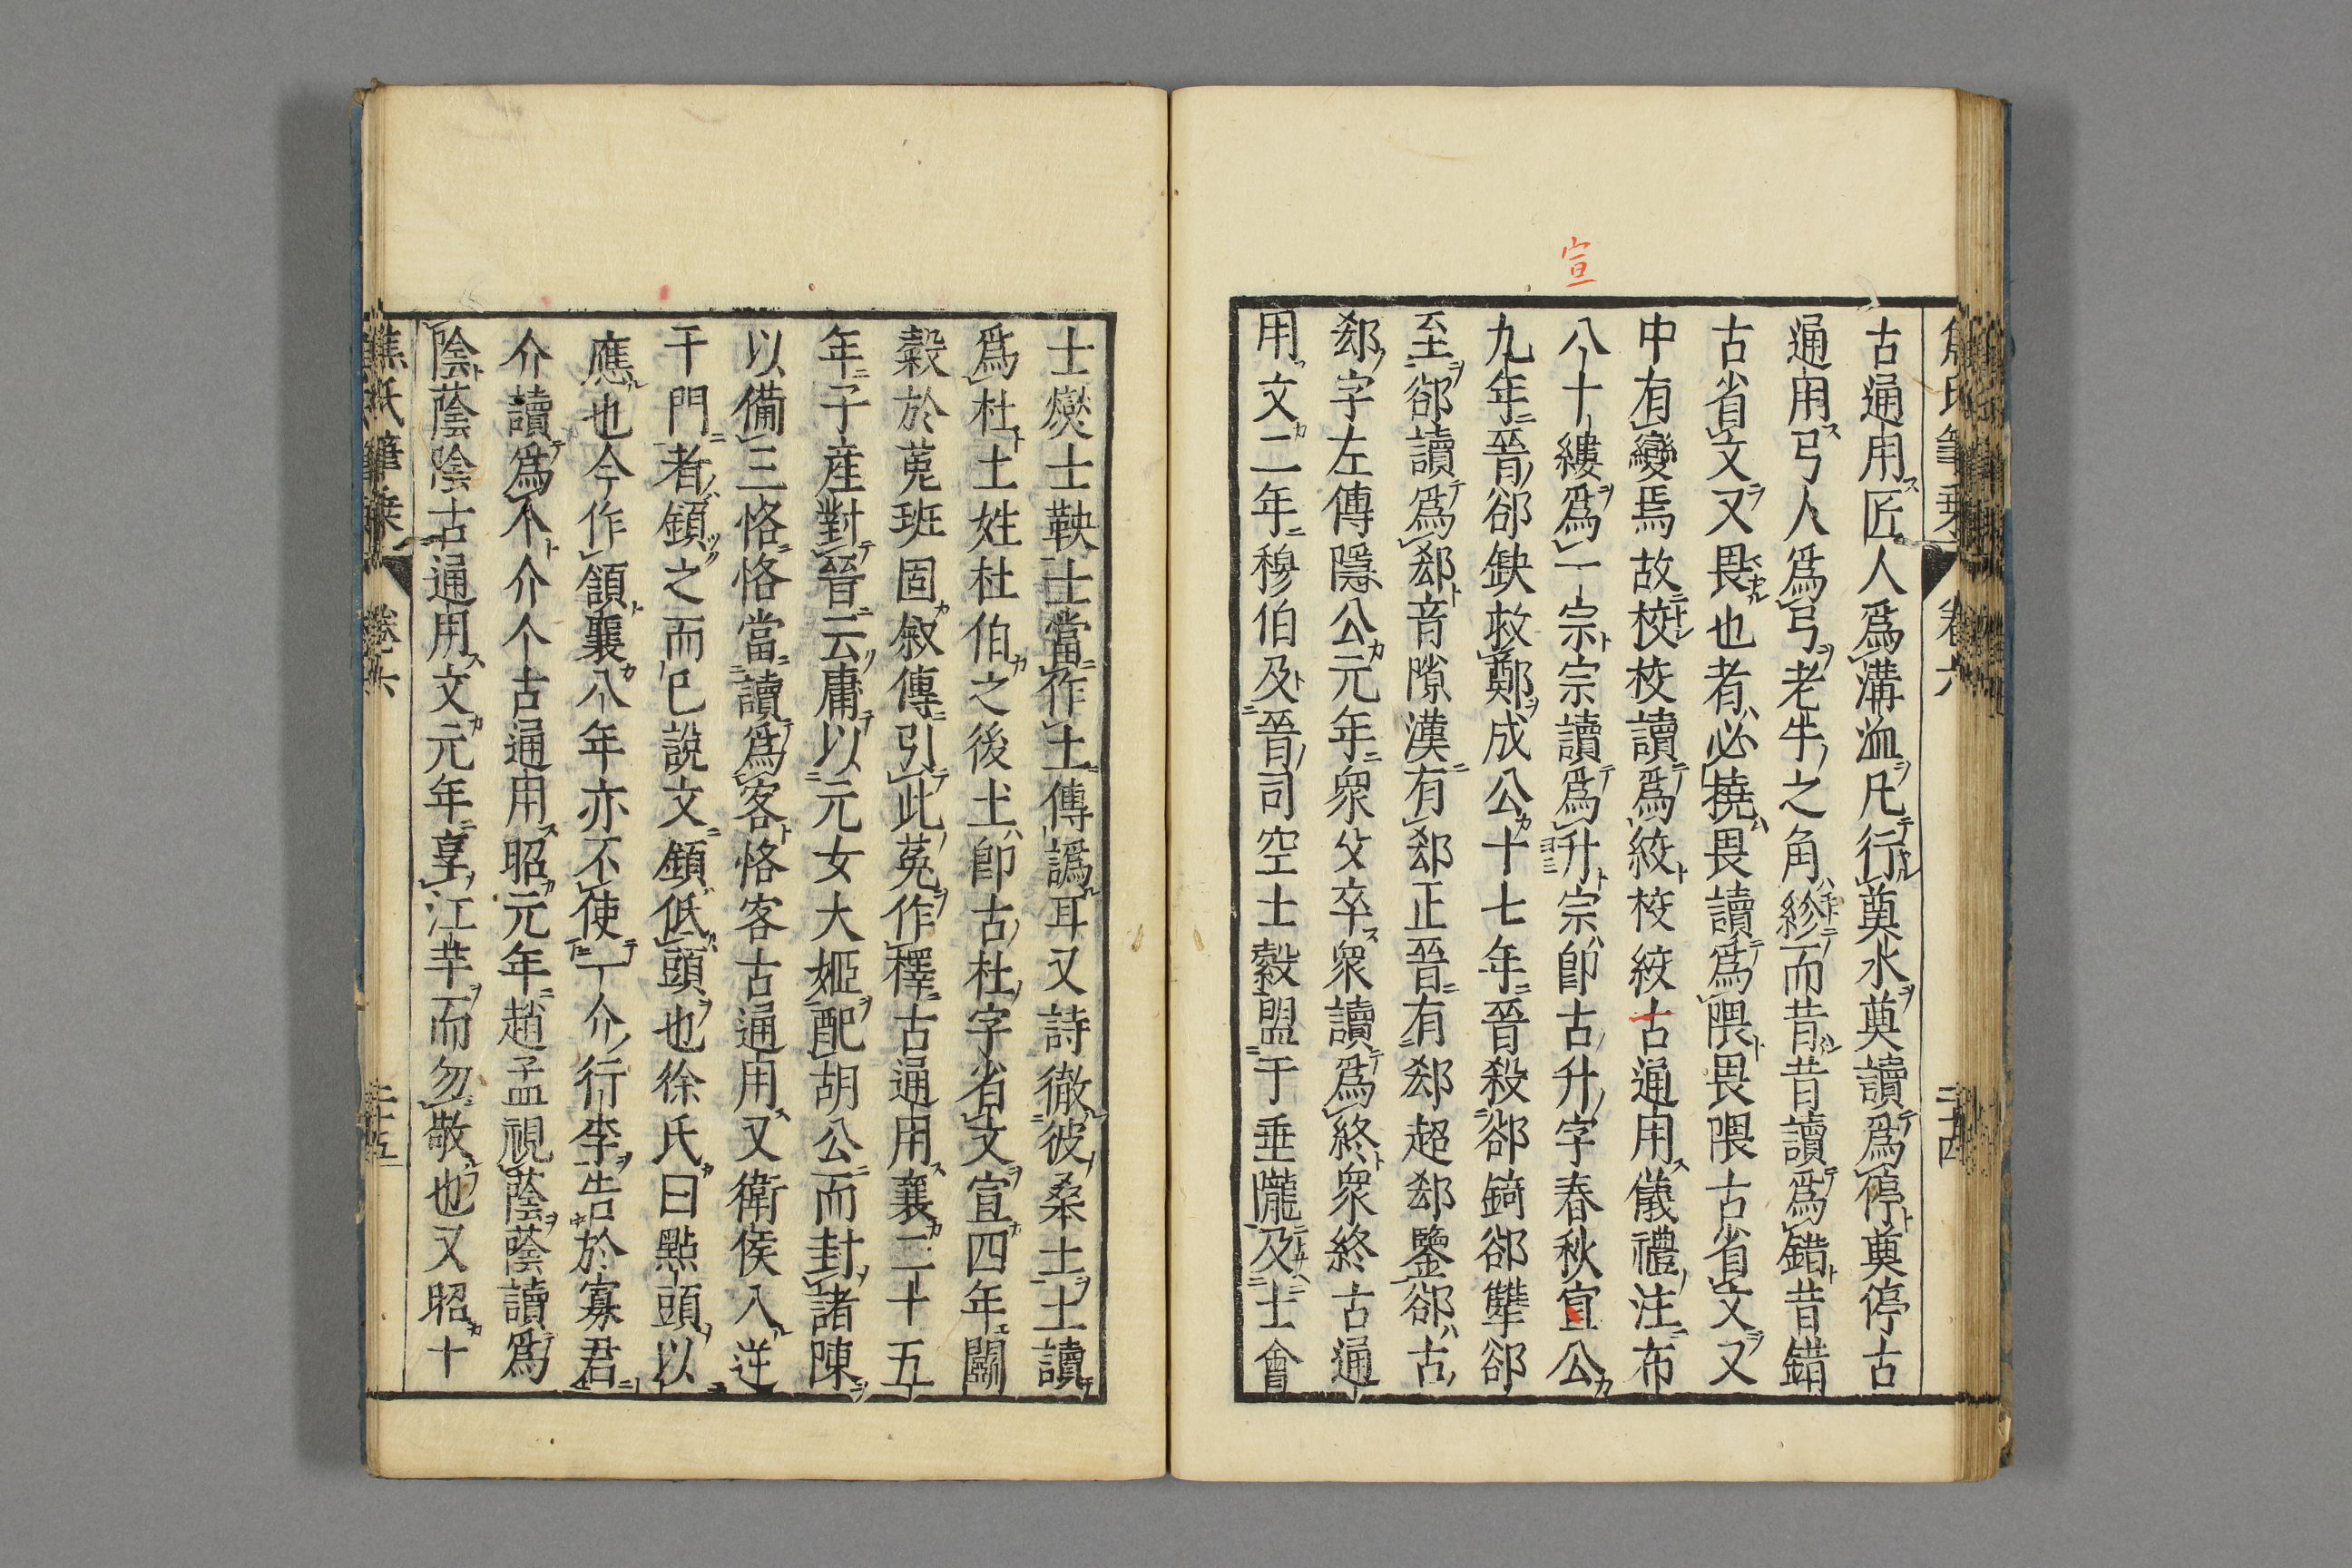 宣
焦氏筆乗 卷六 二十四
古通用匠人爲溝洫凡行奠水奠讀爲停奠停古
通用弓人爲弓老牛之角紾而昔昔讀爲錯昔錯
古省文又畏也者必撓畏讀爲隈畏隈古省文又
中有變焉故校校讀爲絞校絞古通用儀禮注布
八十縷爲一宗宗讀爲升宗卽古升字春秋宣公
九年晉郤缺救鄭成公十七年晉殺郤錡郤犨郤
至郤讀爲郄音隙漢有郄正晉有郄超郄鑒郤古
郄字左傳隱公元年衆父卒衆讀爲終衆終古通
用文二年穆伯及晉司空士縠盟于垂隴及士會
士爕士鞅士當作土傳譌耳又詩徹彼桑土土讀
爲杜土姓杜伯之後土卽古杜字省文宣四年鬬
穀於菟班固叙傳引此菟作檡古通用襄二十五
年子産對晉云庸以元女大姬配胡公而封諸陳
以備三恪恪當讀爲客恪客古通用又衛侯入逆
于門者頷之而已說文頷低頭也徐氏曰點頭以
應也今作頷襄八年亦不使一介行李告於寡君
介讀爲个介个古通用昭元年趙孟視蔭蔭讀爲
陰蔭陰古通用文元年享江芉而勿敬也又昭十
焦氏筆乗 卷六 二十五